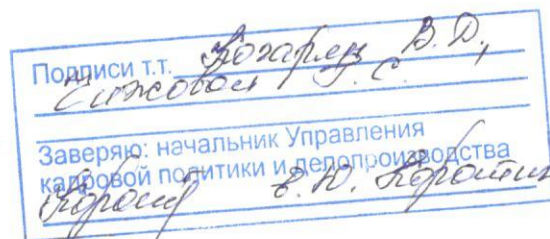 Подписи т.т. Кохарчук В.Д.,
Чижовой Г.С.
Заверяю: начальник Управления
кадровой политики и делопроизводства
Е.Ю.